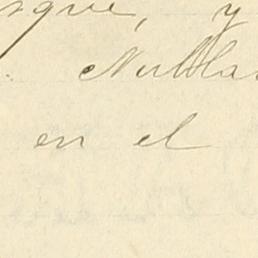 sque, y
Nublas
en el